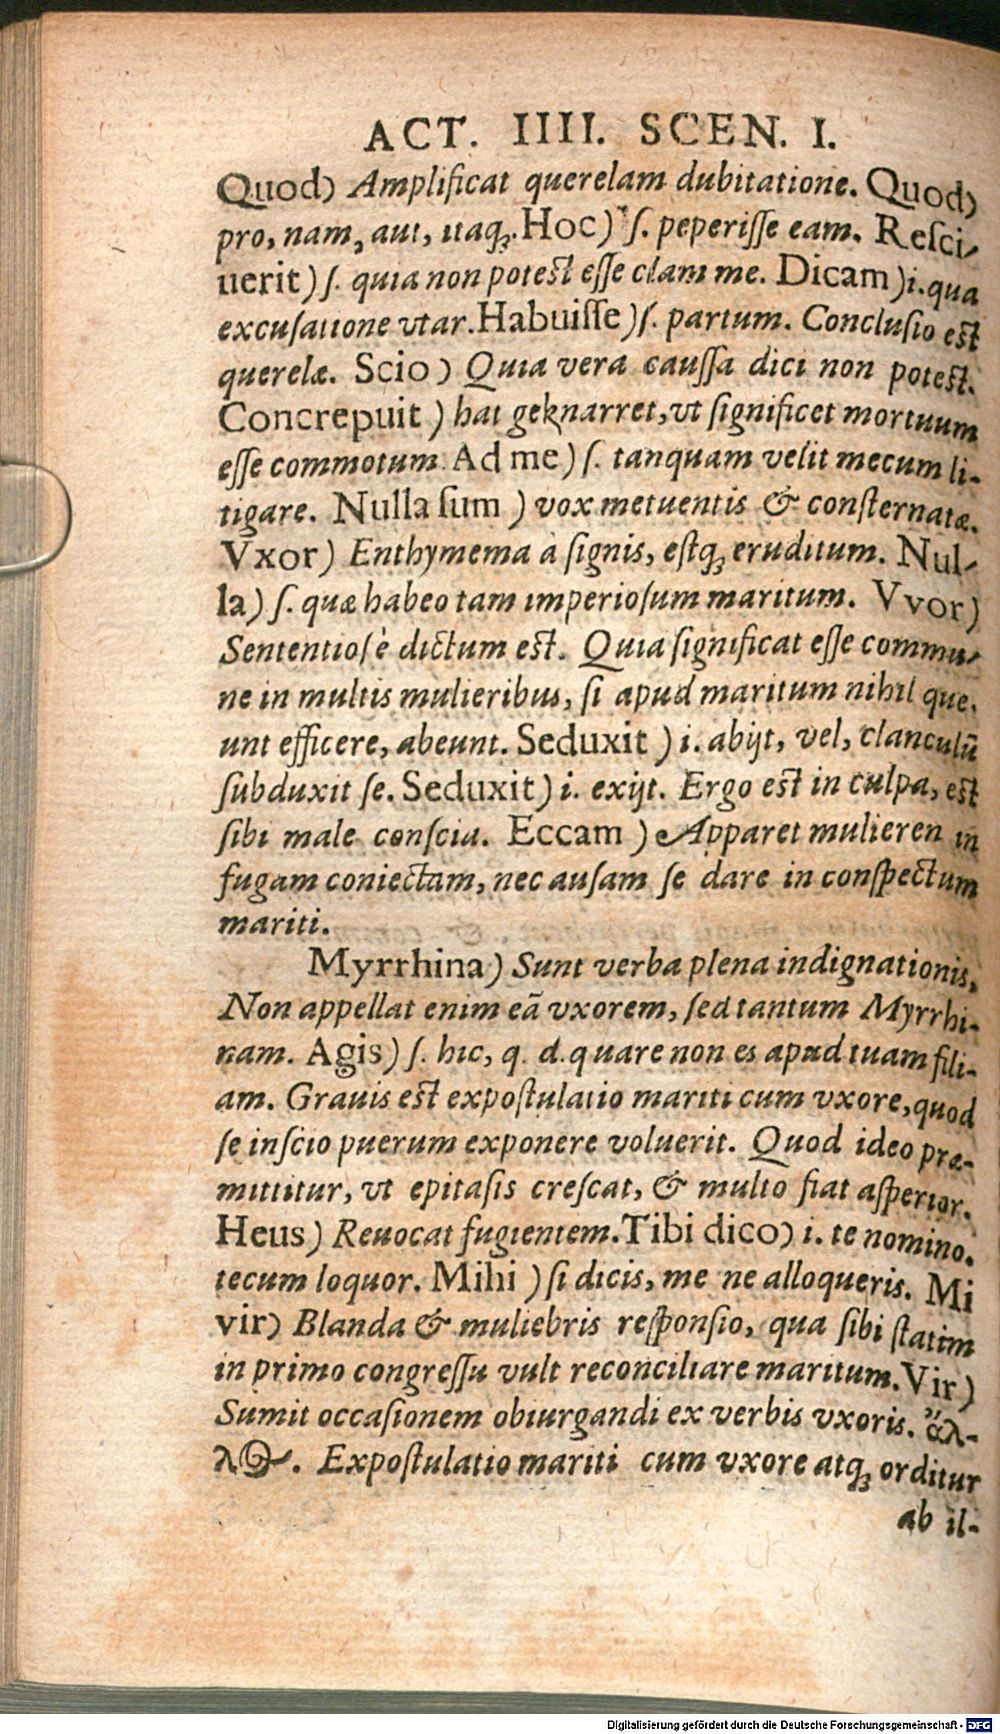 ACT. IIII. SCEN. I.
Quod) Amplificat querelam dubitatione. Quod)
pro, nam, aut, itaqꝫ. Hoc) ſ. peperiſſe eam. Reſci-
uerit) ſ. quia non poteſt eſſe clam me. Dicam) i. qua
excuſatione vtar. Habuiſſe) ſ. partum. Concluſio eſt
querelæ. Scio) Quia vera cauſſa dici non poteſt.
Concrepuit) hat geknarret, vt ſignificet mortuum
eſſe commotum. Ad me) ſ. tanquam velit mecum li-
tigare. Nulla ſum) vox metuentis & conſternatæ.
Vxor) Enthymema à ſignis, eſtqꝫ eruditum. Nul-
la) ſ. quæ habeo tam imperioſum maritum. Vvor)
Sententioſè dictum eſt. Quia ſignificat eſſe commu-
ne in multis mulieribus, ſi apud maritum nihil que-
unt efficere, abeunt. Seduxit) i. abijt, vel, clanculũ
ſubduxit ſe. Seduxit) i. exijt. Ergo eſt in culpa, eſt
ſibi male conſcia. Eccam) Apparet mulieren in
fugam coniectam, nec auſam ſe dare in conſpectum
mariti.
Myrrhina) Sunt verba plena indignationis,
Non appellat enim eã vxorem, ſed tantum Myrrhi-
nam. Agis) ſ. hic, q. d. quare non es apud tuam fili-
am. Grauis eſt expoſtulatio mariti cum vxore, quod
ſe inſcio puerum exponere voluerit. Quod ideo præ-
mittitur, vt epitaſis creſcat, & multo fiat aſperior.
Heus) Reuocat fugientem. Tibi dico) i. te nomino.
tecum loquor. Mihi) ſi dicis, me ne alloqueris. Mi
vir) Blanda & muliebris reſponſio, qua ſibi ſtatim
in primo congreſſu vult reconciliare maritum. Vir)
Sumit occaſionem obiurgandi ex verbis vxoris. ἄλ-
λος. Expoſtulatio mariti cum vxore atqꝫ orditur
ab il-
Digitalisierung gefördert durch die Deutsche Forschungsgemeinschaft - DFG